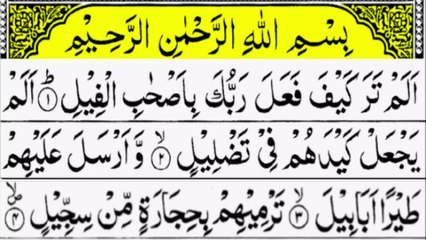 بِسْمِ اللهِ الرَّحْمٰنِ الرَّحِيْمِ
اَلَمْ تَرَ كَيْفَ فَعَلَ رَبُّكَ بِاَصْحٰبِ الْفِيْلِ ؕ﴿۱﴾ اَلَمْ
يَجْعَلْ كَيْدَهُمْ فِيْ تَضْلِيْلٍ ۙ﴿۲﴾ وَّاَرْسَلَ عَلَيْهِمْ
طَيْرًا اَبَابِيْلَ ۙ﴿۳﴾ تَرْمِيْهِمْ بِحِجَارَةٍ مِّنْ سِجِّيْلٍ ۙ﴿۴﴾